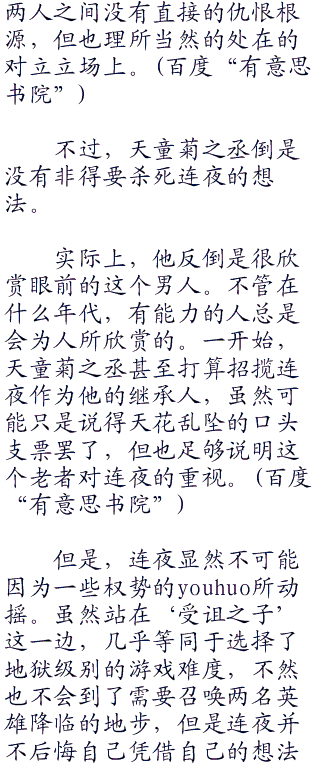 两人之间没有直接的仇恨根
源，但也理所当然的处在的
对立立场上。(百度“有意思
书院”)
不过，天童菊之丞倒是
没有非得要杀死连夜的想
法。
实际上，他反倒是很欣
赏眼前的这个男人。不管在
什么年代，有能力的人总是
会为人所欣赏的。一开始，
天童菊之丞甚至打算招揽连
夜作为他的继承人，虽然可
能只是说得天花乱坠的口头
支票罢了，但也足够说明这
个老者对连夜的重视。(百度
“有意思书院”)
但是，连夜显然不可能
因为一些权势的youhuo所动
摇。虽然站在‘受诅之子’
这一边，几乎等同于选择了
地狱级别的游戏难度，不然
也不会到了需要召唤两名英
雄降临的地步，但是连夜并
不后悔自己凭借自己的想法